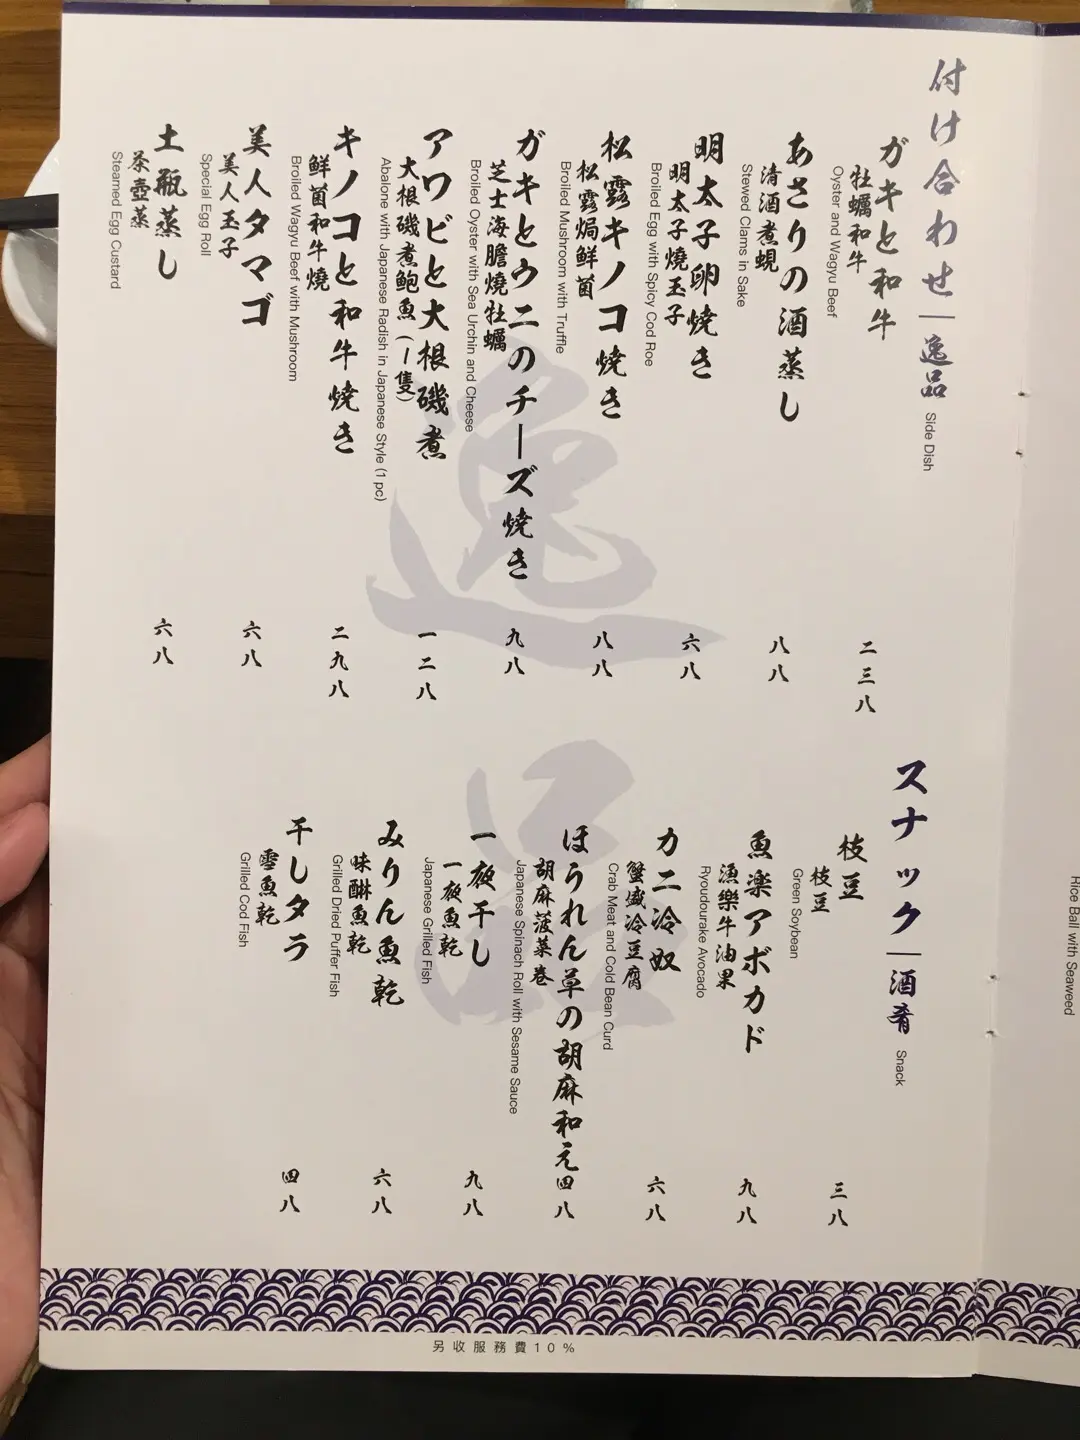 付け合わせ｜逸品 Side Dish
ガキと和牛
牡蠣和牛
Oyster and Wagyu Beef
二三八
あさりの酒蒸し
清酒煮蜆
Stewed Clams in Sake
八八
明太子卵焼き
明太子燒玉子
Broiled Egg with Spicy Cod Roe
六八
松露キノコ焼き
松露焗鮮菌
Broiled Mushroom with Truffle
八八
ガキとウニのチーズ焼き
芝士海膽燒牡蠣
Broiled Oyster with Sea Urchin and Cheese
九八
アワビと大根磯煮
大根磯煮鮑魚(一隻)
Abalone with Japanese Radish in Japanese Style (1 pc)
一二八
キノコと和牛焼き
鮮菌和牛燒
Broiled Wagyu Beef with Mushroom
二九八
美人タマゴ
美人玉子
Special Egg Roll
六八
土瓶蒸し
茶壺蒸
Steamed Egg Custard
六八
スナック｜酒肴 Snack
枝豆
枝豆
Green Soybean
三八
魚楽アボカド
漁樂牛油果
Ryoudourake Avocado
九八
カニ冷奴
蟹盛冷豆腐
Crab Meat and Cold Bean Curd
六八
ほうれん草の胡麻和え
胡麻菠菜卷
Japanese Spinach Roll with Sesame Sauce
四八
一夜干し
一夜魚乾
Japanese Grilled Fish
九八
みりん魚乾
味醂魚乾
Grilled Dried Puffer Fish
六八
干しタラ
雪魚乾
Grilled Cod Fish
四八
逸品
另收服務費10%
Rice Ball with Seaweed